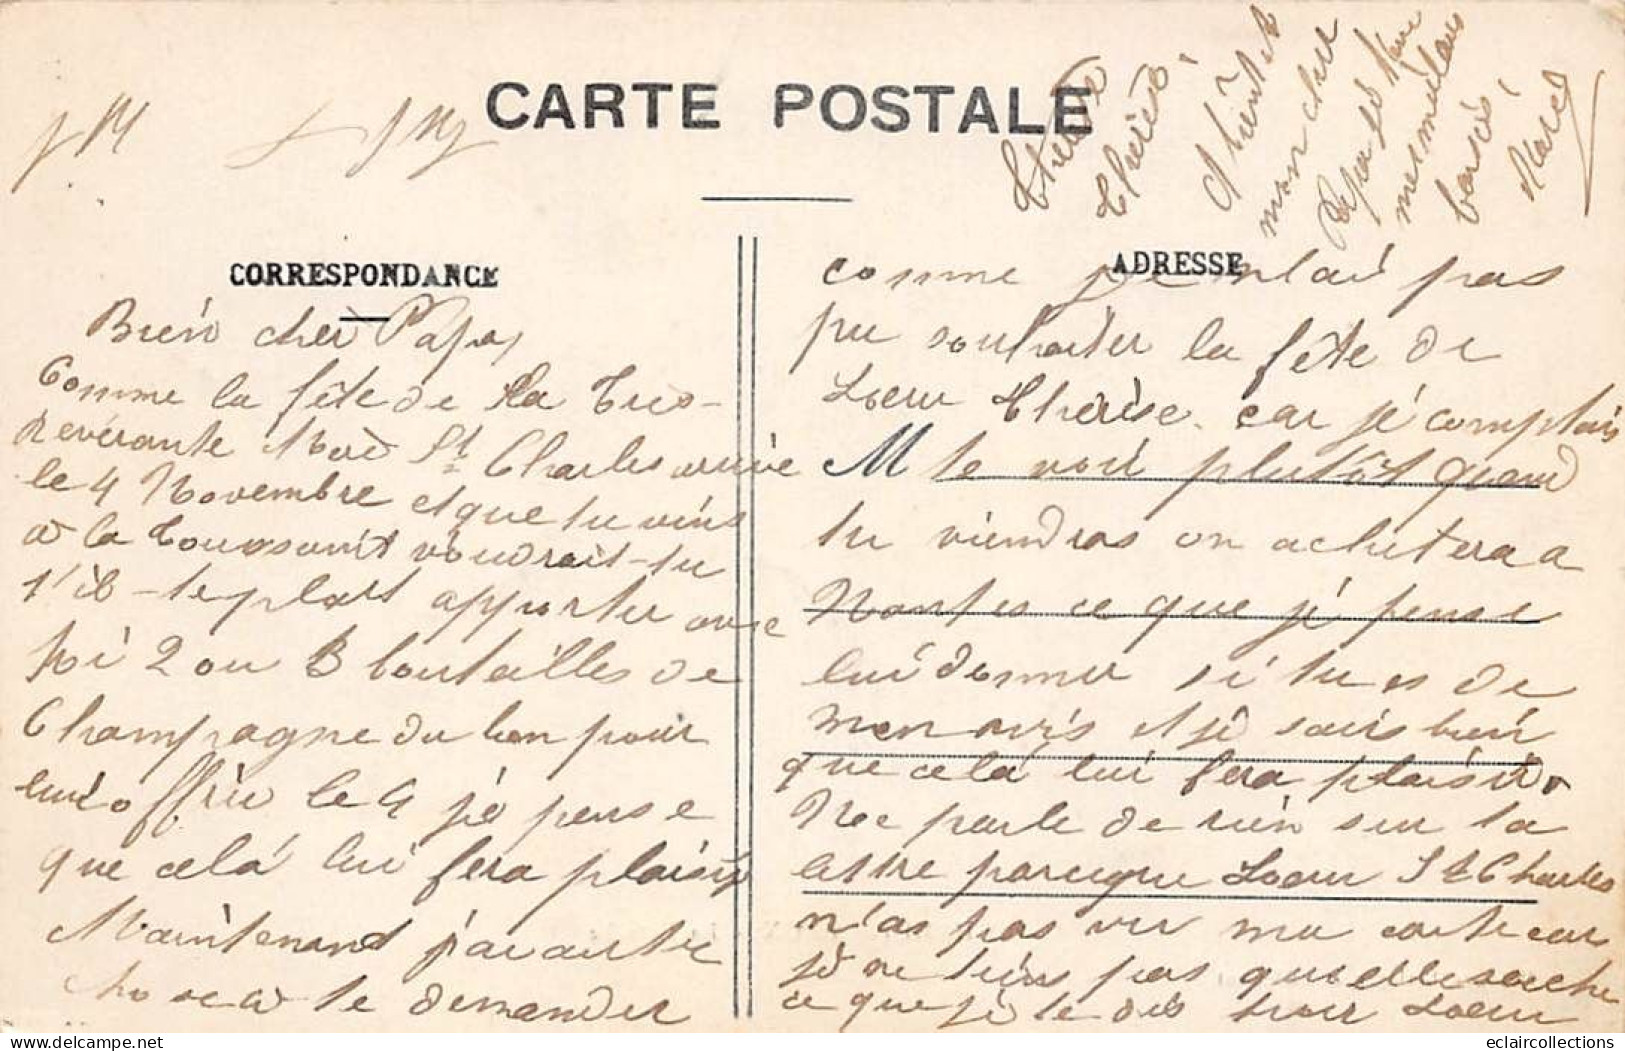 CARTE POSTALE
CORRESPONDANCE
Bien cher Papa,
Comme la fête de la Très-
Révérante Mère St Charles arrive
le 4 Novembre et que tu viens
à la Toussaint voudrait-tu
s'il-te plait apporter avec
toi 2 ou 3 bouteilles de
Champagne du bon pour
lui offrir le 4 je pense
que celà lui fera plaisir
Maintenant j'ai autre
chose à te demander
ADRESSE
comme je n'ai pas
pu souhaiter la fête de
Soeur Thérèse car je comptais
te voir plutôt quand
tu viendras on achetera a
Nantes ce que je pense
lui donner si tu es de
mon avis et je sais bien
que celà lui fera plaisir
Ne parle de rien sur ta
lettre parceque Soeur St Charles
n'as pas vu ma carte car
je ne tiens pas qu'elle sache
ce que je te dis pour Soeur
Thérèse
Thérèse
A bientôt
mon cher
Papa
mes meilleurs
baisers
Marcel